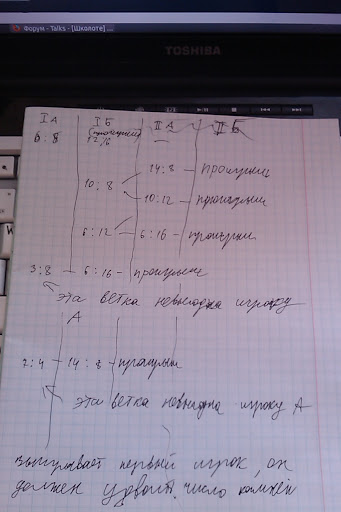 Форум - Talks - [Школоте]
TOSHIBA
I A I Б II А II Б
6:8 (проигрыш)
14:8 - проигрыш
10:8
10:12 - проигрыш
6:12 - 6:16 - проигрыш
3:8 - 6:16 - проигрыш
эта ветка невыгодна игроку
А
7:4 - 14:8 - проигрыш
эта ветка невыгодна игроку А
выигрывает первый игрок, он
должен удвоить число камней